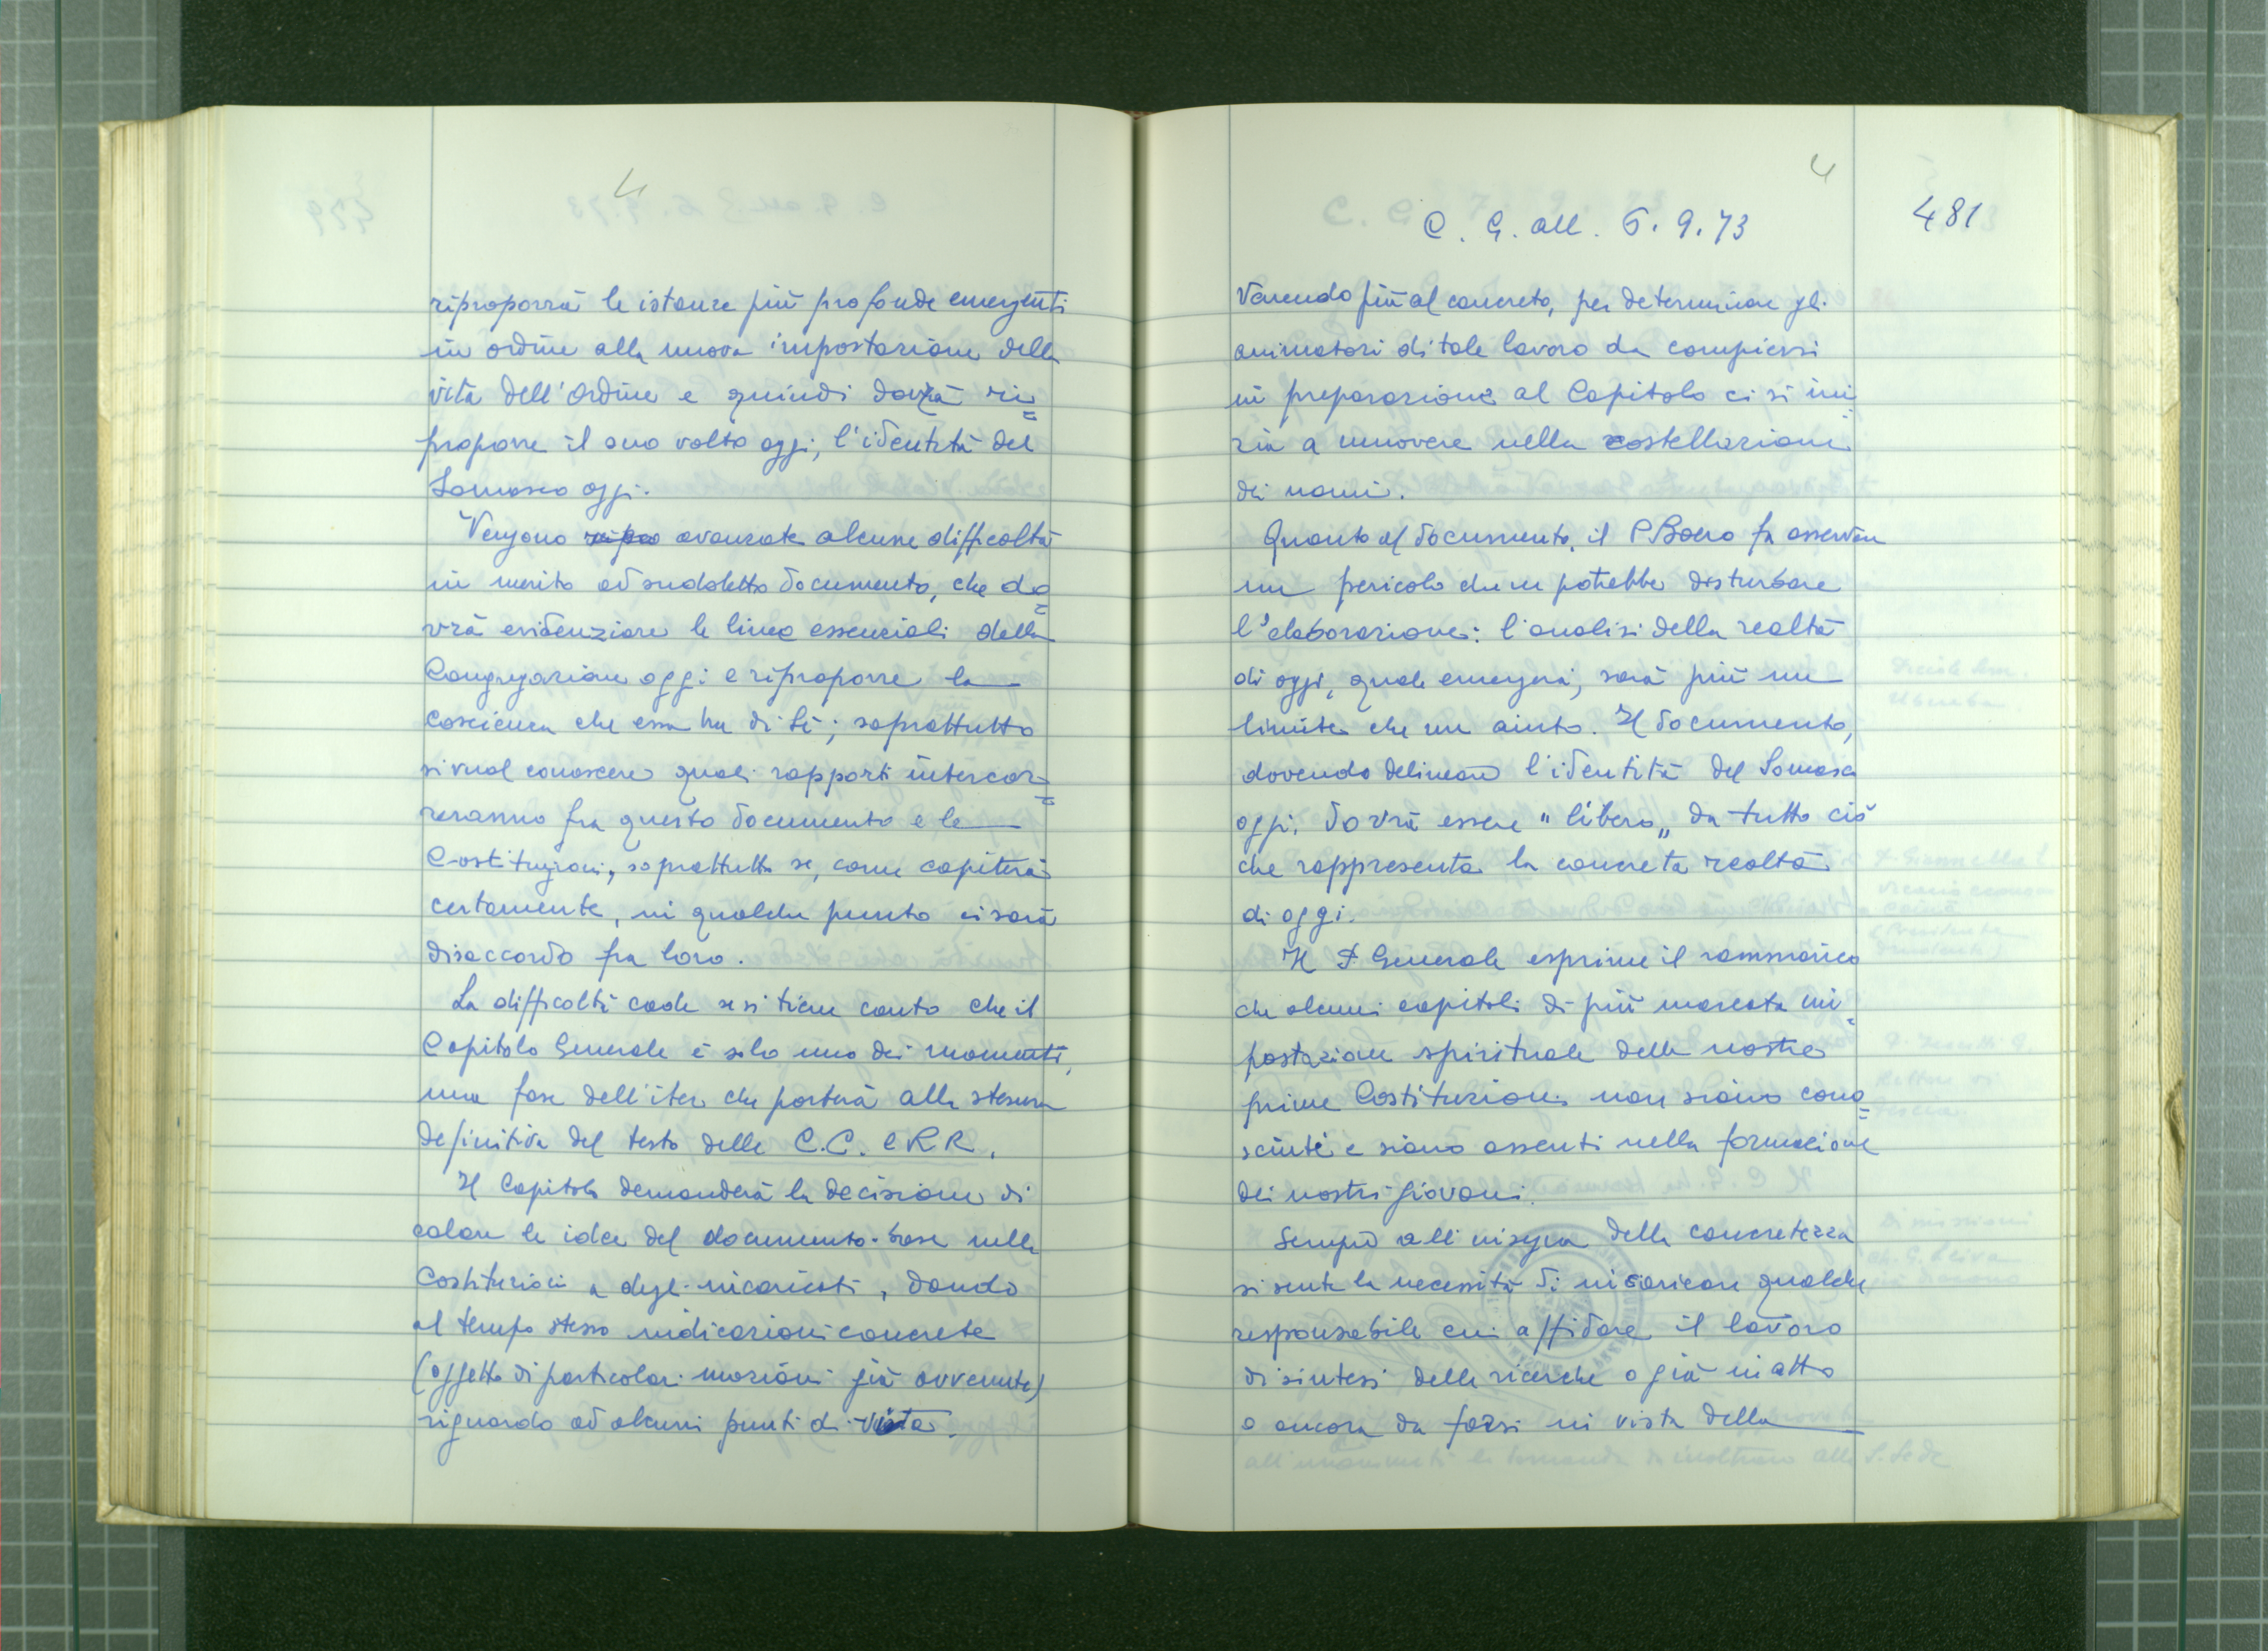 4
riproporrà le istanze più profonde emergenti
in ordine alla nuova impostazione della
vita dell'Ordine e quindi dovrà ri=
proporre il suo volto oggi, l'identità del
Somasco oggi.
Vengono avanzate alcune difficoltà
in merito ad suddetto documento, che do=
vrà evidenziare le linee essenziali della
Congregazione oggi e riproporre la
coscienza che essa ha di sè; soprattutto
si vuol conoscere quali rapporti intercor=
reranno fra questo documento e le
Costituzioni, soprattutto se, come capiterà
certamente, in qualche punto ci sarà
disaccordo fra loro.
La difficoltà cade se si tiene conto che il
Capitolo Generale è solo uno dei momenti,
una fase dell'iter che porterà alla stesura
definitiva del testo delle C.C. e RR.
Il Capitolo demanderà la decisione di
calare le idee del documento-base nelle
Costituzioni a degli incaricati, dando
al tempo stesso indicazioni concrete
(oggetto di particolari mozioni già avvenute)
riguardo ad alcuni punti di vista.
4
C. G. all. 6. 9. 73
481
Venendo più al concreto, per determinare gli
animatori di tale lavoro da compiersi
in preparazione al Capitolo ci si ini
zia a muovere nella costellazione
dei nomi.
Quanto al documento, il P Boero fa osservare
un pericolo che ne potrebbe disturbare
l'elaborazione: l'analisi della realtà
di oggi, quale emergerà, sarà più un
limite che un aiuto. Il documento,
dovendo delineare l'identità del Somasco
oggi, dovrà essere "libero" da tutto ciò
che rappresenta la concreta realtà
di oggi.
Il P Generale esprime il rammarico
che alcuni capitoli di più marcata im=
postazione spirituale delle nostre
prime Costituzioni non siano cono=
sciuti e siano assenti nella formazione
dei nostri giovani.
Sempre all'insegna della concretezza
si sente la necessità di incaricare qualche
responsabile cui affidare il lavoro
di sintesi delle ricerche o già in atto
o ancora da farsi in vista della